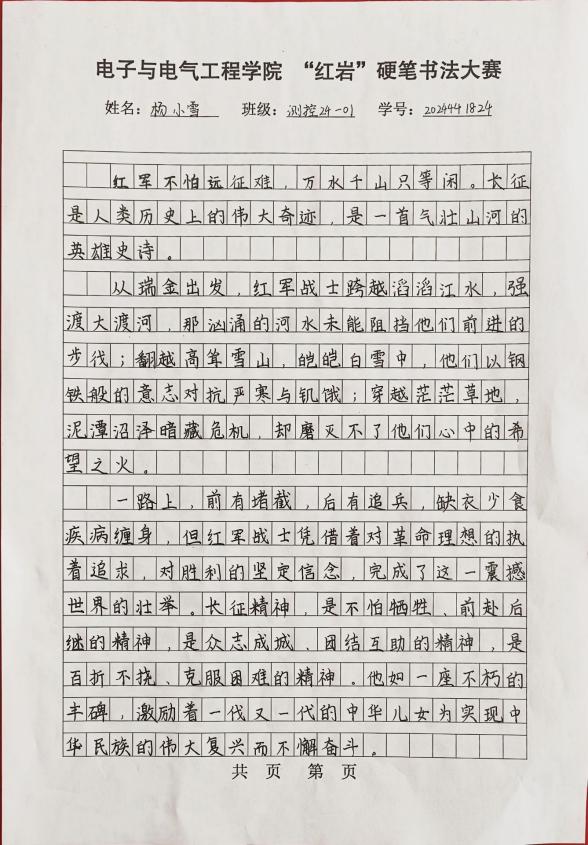 电子与电气工程学院 “红岩”硬笔书法大赛
姓名：杨小雪 班级：测控24-01 学号：2024441824
红军不怕远征难，万水千山只等闲。长征
是人类历史上的伟大奇迹，是一首气壮山河的
英雄史诗。
从瑞金出发，红军战士跨越滔滔江水，强
渡大渡河，那汹涌的河水未能阻挡他们前进的
步伐；翻越高耸雪山，皑皑白雪中，他们以钢
铁般的意志对抗严寒与饥饿；穿越茫茫草地，
泥潭沼泽暗藏危机，却磨灭不了他们心中的希
望之火。
一路上，前有堵截，后有追兵，缺衣少食
疾病缠身，但红军战士凭借着对革命理想的执
着追求，对胜利的坚定信念，完成了这一震撼
世界的壮举。长征精神，是不怕牺牲、前赴后
继的精神，是众志成城、团结互助的精神，是
百折不挠、克服困难的精神。他如一座不朽的
丰碑，激励着一代又一代的中华儿女为实现中
华民族的伟大复兴而不懈奋斗。
共 页 第 页